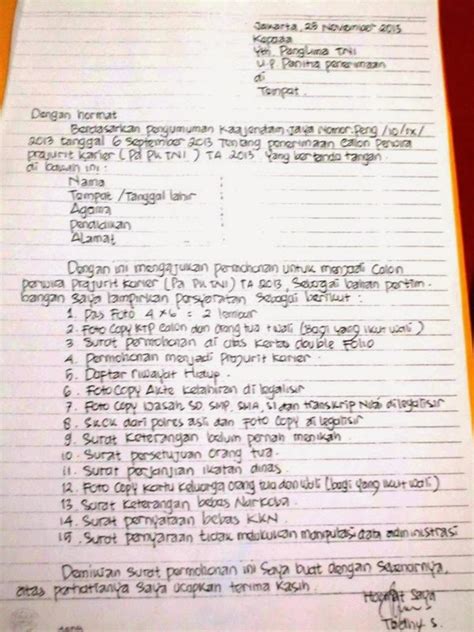 Jakarta, 25 November 2013
Kepada
Yth. Panglima TNI
U.P. Panitia penerimaan
di
Tempat.
Dengan hormat
Berdasarkan pengumuman Kaajendam Jaya Nomor Peng /10/IX/
2013 tanggal 6 September 2013 Tentang penerimaan Calon Perwira
prajurit karier (Pa PK TNI) TA 2013 yang bertanda tangan
di bawah ini :
Nama :
Tempat /Tanggal lahir :
Agama :
Pendidikan :
Alamat :
Dengan ini mengajukan permohonan untuk menjadi Calon
perwira prajurit karier (Pa PK TNI) TA 2013, Sebagai bahan pertim-
bangan saya lampirkan persyaratan sebagai berikut :
1. Pas Foto 4x6 = 2 lembar
2. Foto Copy KTP Calon dan orang tua + wali (Bagi yang ikut wali)
3. Surat permohonan di atas kertas double Folio
4. Permohonan menjadi Prajurit karier.
5. Daftar riwayat Hidup.
6. Foto Copy Akte kelahiran di legalisir
7. Foto Copy Ijasah SD SMP, SMA, SI dan transkrip Nilai di legalisir
8. SKCK dari polres asli dan Foto Copy di legalisir
9. Surat keterangan belum pernah menikah.
10. Surat persetujuan orang tua.
11. Surat perjanjian ikatan dinas
12. Foto Copy kartu keluarga orang tua dan wali (bagi yang ikut wali)
13. Surat keterangan bebas Narkoba.
14. Surat pernyataan bebas KKN.
15. Surat pernyaraan tidak melakukan manipulasi data administrasi
Demikian surat permohonan ini saya buat dengan sebenarnya,
atas perhatianya saya ucapkan terima kasih.
Hormat Saya